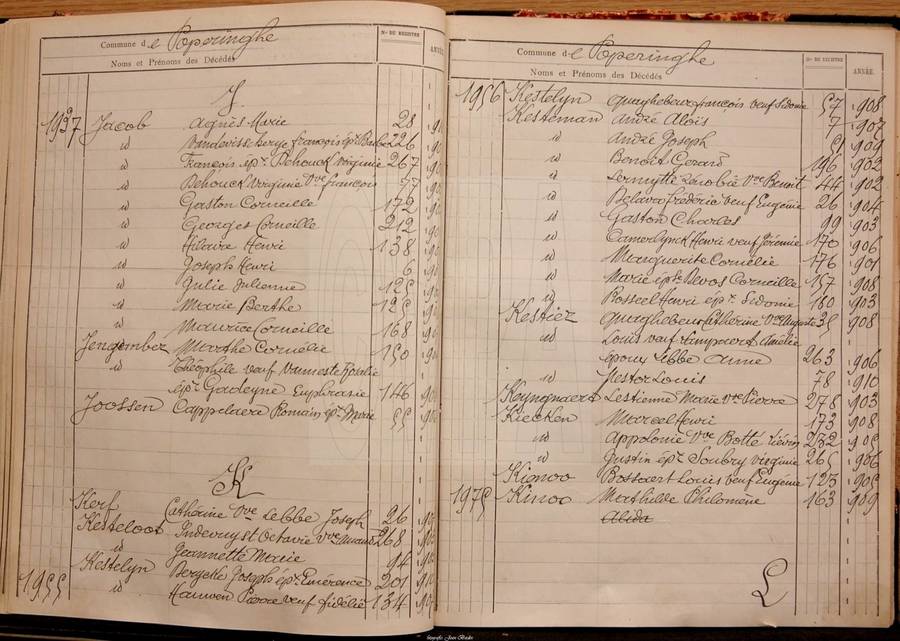 Commune de Poperinghe
Nº DU REGISTRE
ANNÉE
Noms et Prénoms des Décédés
J.
1937 Jacob Agnès Marie 28
id Vandevisse Serge françois épx 226
id François épx Dehouck Virginie 267
id Dehouck Virginie Vve françois 77
id Gaston Corneille 172
id Georges Corneille 212
id Hilaire Henri 138
id Joseph Henri 6
id Julie Julienne 125
id Marie Berthe 125
id Maurice Corneille 168
Jengember Marthe Cornélie 150
id Théophile veuf Vanneste Rosalie
épx Gadeyne Euphrasie 146
Joossen Cappelaere Romain épx Marie 55
K
Kerf Cathérine Vve Lebbe Joseph 26
Kesteloot Indevuyst Octavie Vve Amand 268
id Jeannette Marie 94
Kestelyn Beryelle Joseph épx Emérence 201
1955 id Hauwen Pierre veuf fidélie 134
Commune de Poperinghe
Nº DU REGISTRE
ANNÉE.
Noms et Prénoms des Décédés
1956 Kestelyn Quaghebeur françois veuf Sidonie 57 908
Kesteman André Aloïs 7 907
id André Joseph 51 909
id Benoit Gerard 196 902
id Lermytte Zénobie Vve Benoit 44 902
id Delava frédéric veuf Eugénie 26 904
id Gaston Charles 99 903
id Camerlynck Henri veuf Jérémie 170 906
id Marguerite Cornélie 176 901
id Marie épse Devos Corneille 157 908
id Rosseel Henri épx Sidonie 180 903
Kestier Quaghebeur Catherine Vve Auguste 35 908
id Louis veuf Amélie
époux Lebbe Anne 263 906
id Nestor Louis 78 910
Keyngnaert Lestienne Marie Vve Pierre 278 903
Kiecken Marcel Henri 173 908
id Appolonie Vve Botté Liévin 232 905
id Justin épx Soubry Virginie 265 906
Kienoo Bossaert Louis veuf Eugénie 123 905
1975 Kinoo Mathilde Philomène 163 909
Alida
L